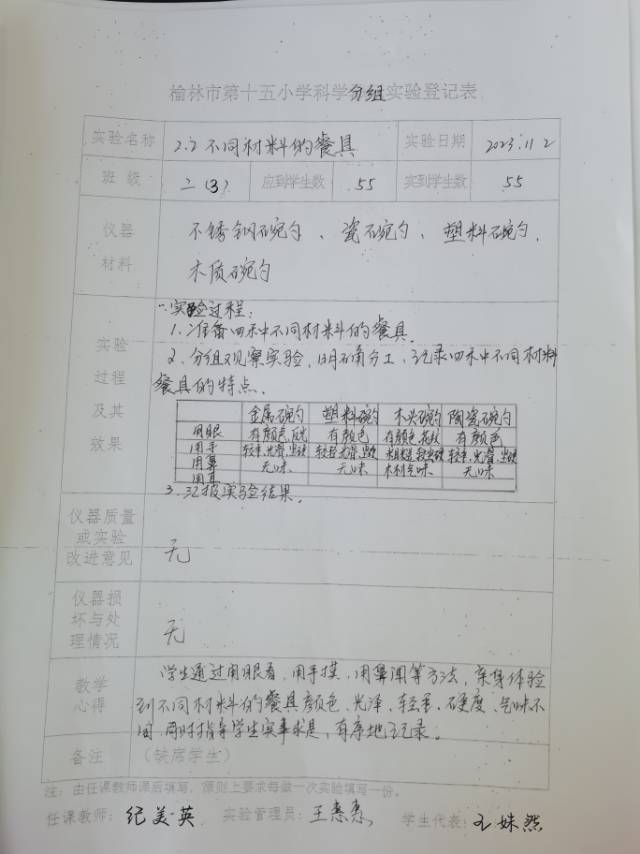 榆林市第十五小学科学分组实验登记表
实验名称 2.2不同材料的餐具 实验日期 2023.11 2
班 级 二(3) 应到学生数 55 实到学生数 55
仪器材料 不锈钢碗勺、瓷碗勺、塑料碗勺、
木质碗勺
实验过程及其效果
一.实验过程:
1、准备四种不同材料的餐具.
2、分组观察实验,明确分工,记录四种不同材料
餐具的特点.
金属碗勺 塑料碗勺 木头碗勺 陶瓷碗勺
用眼 有颜色, 有颜色 有颜色,花纹 有颜色
用手 较重,光滑,坚硬 较轻,光滑,坚硬 粗糙,较坚硬 较重,光滑,坚硬
用鼻 无味 无味 木料气味 无味
用耳
3.汇报实验结果.
仪器质量或实验改进意见 无
仪器损坏与处理情况 无
教学心得
学生通过用眼看,用手摸,用鼻闻等方法,亲身体验
到不同材料的餐具颜色、光泽、轻重、硬度、气味不
同,同时指导学生实事求是,有序地记录。
备注 (缺席学生)
注:由任课教师课后填写,原则上要求每做一次实验填写一份。
任课教师:纪美英 实验管理员:王惠惠 学生代表:王姝然